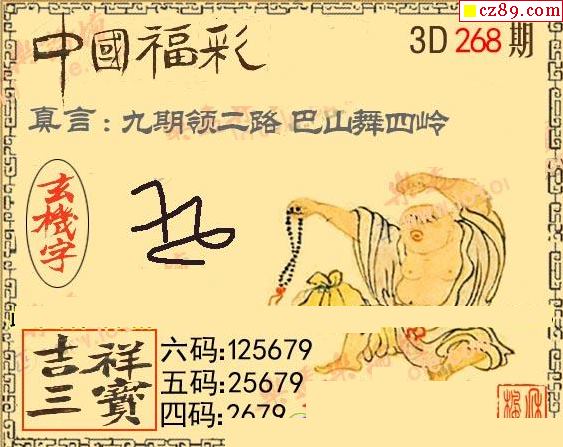 cz89.com
中國福彩
3D 268 期
真言：九期领二路 巴山舞四岭
玄機字
吉祥三寶
六码:125679
五码:25679
四码:2679